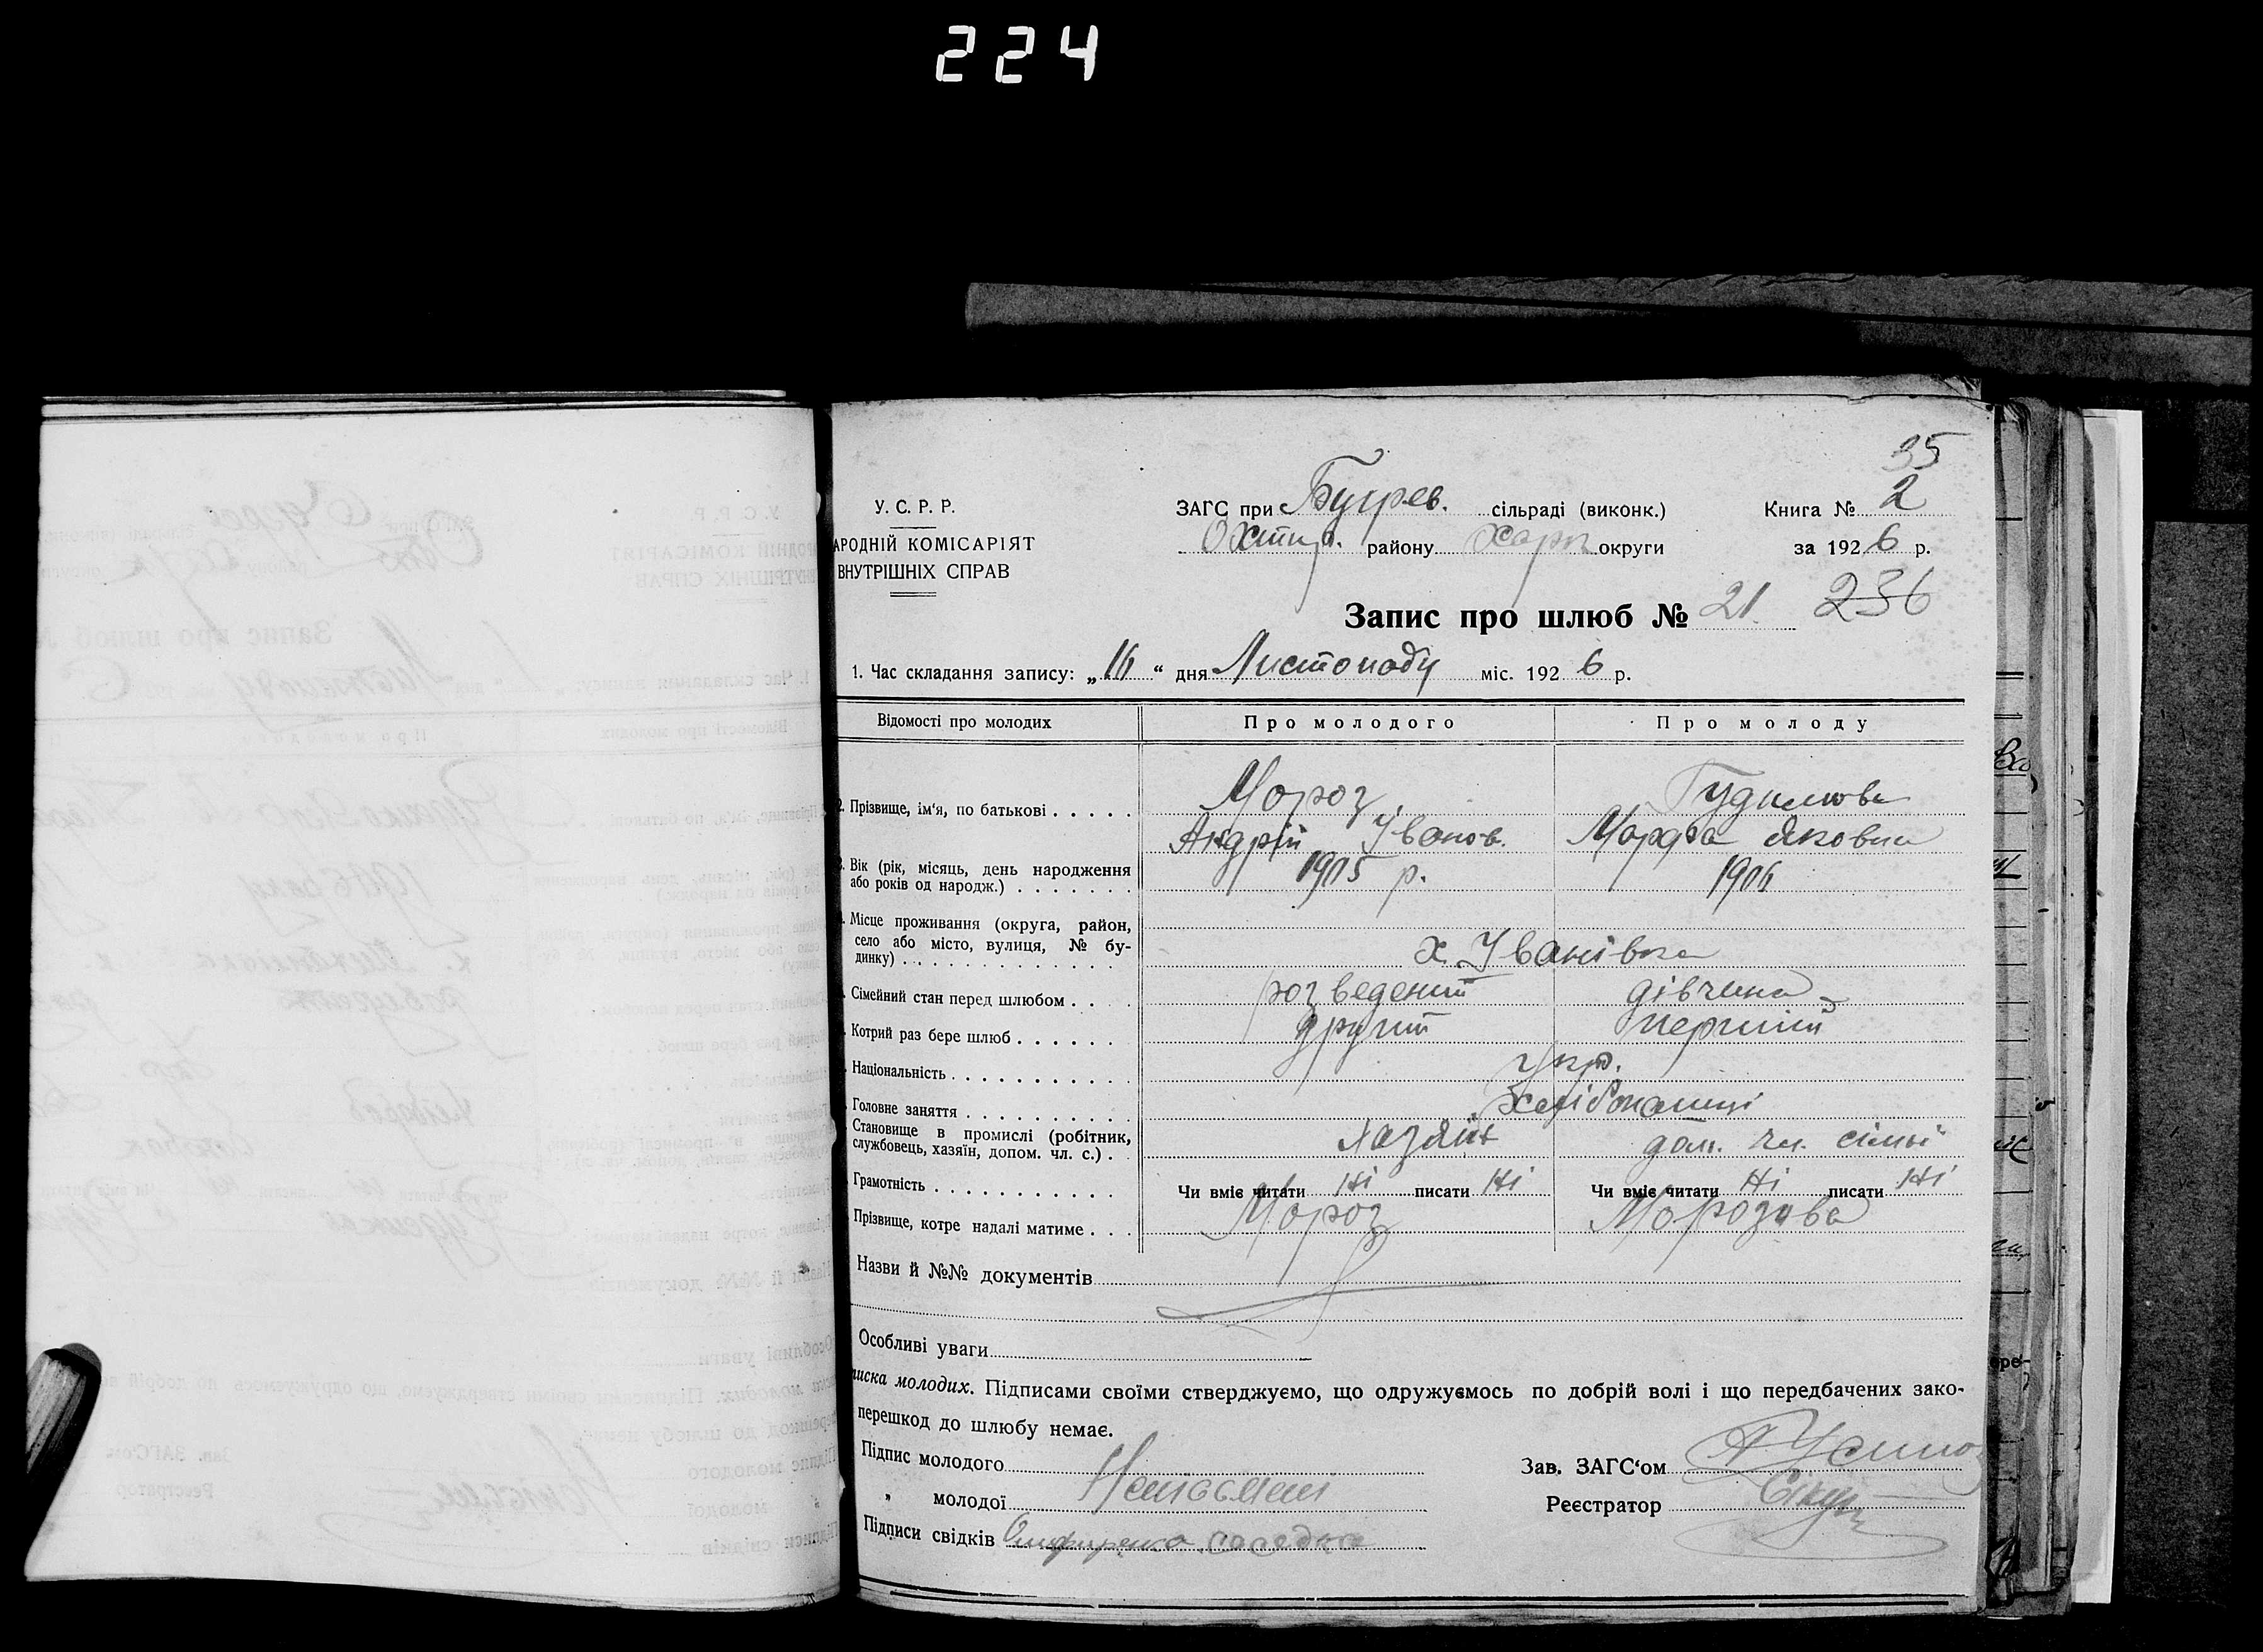 224
35
У. С. Р. Р.
ЗАГС при Бугрев. сільраді (виконк.)
Книга № 2
АРОДНІЙ КОМІСАРІЯТ
Охтир. району Харк округи
за 1926 р.
ВНУТРІШНІХ СПРАВ
Запис про шлюб № 21. 236
1. Час складання запису: „16“ дня Листопаду міс. 1926 р.
Відомості про молодих
Про молодого
Про молоду
Прізвище, ім'я, по батькові . . . . .
Мороз
Андрій Іванов.
Марфа Яковна
Вік (рік, місяць, день народження
або років од народж.) . . . . . . .
1905 р.
1906
Місце проживання (округа, район,
село або місто, вулиця, № бу-
динку) . . . . . . . . . . . .
х. Іванівка
Сімейний стан перед шлюбом . . .
розведений
дівчина
Котрий раз бере шлюб . . . . . .
другий
перший
Національність . . . . . . . . . . .
Укр.
Головне заняття . . . . . . . . . .
Становище в промислі (робітник,
службовець, хазяїн, допом. чл. с.) . .
Хазяїн
доп. чл. сімьі
Грамотність . . . . . . . . . . .
Чи вміє читати Ні писати Ні
Чи вміє читати Ні писати Ні
Прізвище, котре надалі матиме . . .
Мороз
Морозова
Назви й №№ документів
Особливі уваги
писка молодих. Підписами своїми стверджуємо, що одружуємось по добрій волі і що передбачених зако-
перешкод до шлюбу немає.
Підпис молодого
Зав. ЗАГС'ом
„ молодої Неписмені
Реєстратор
Підписи свідків